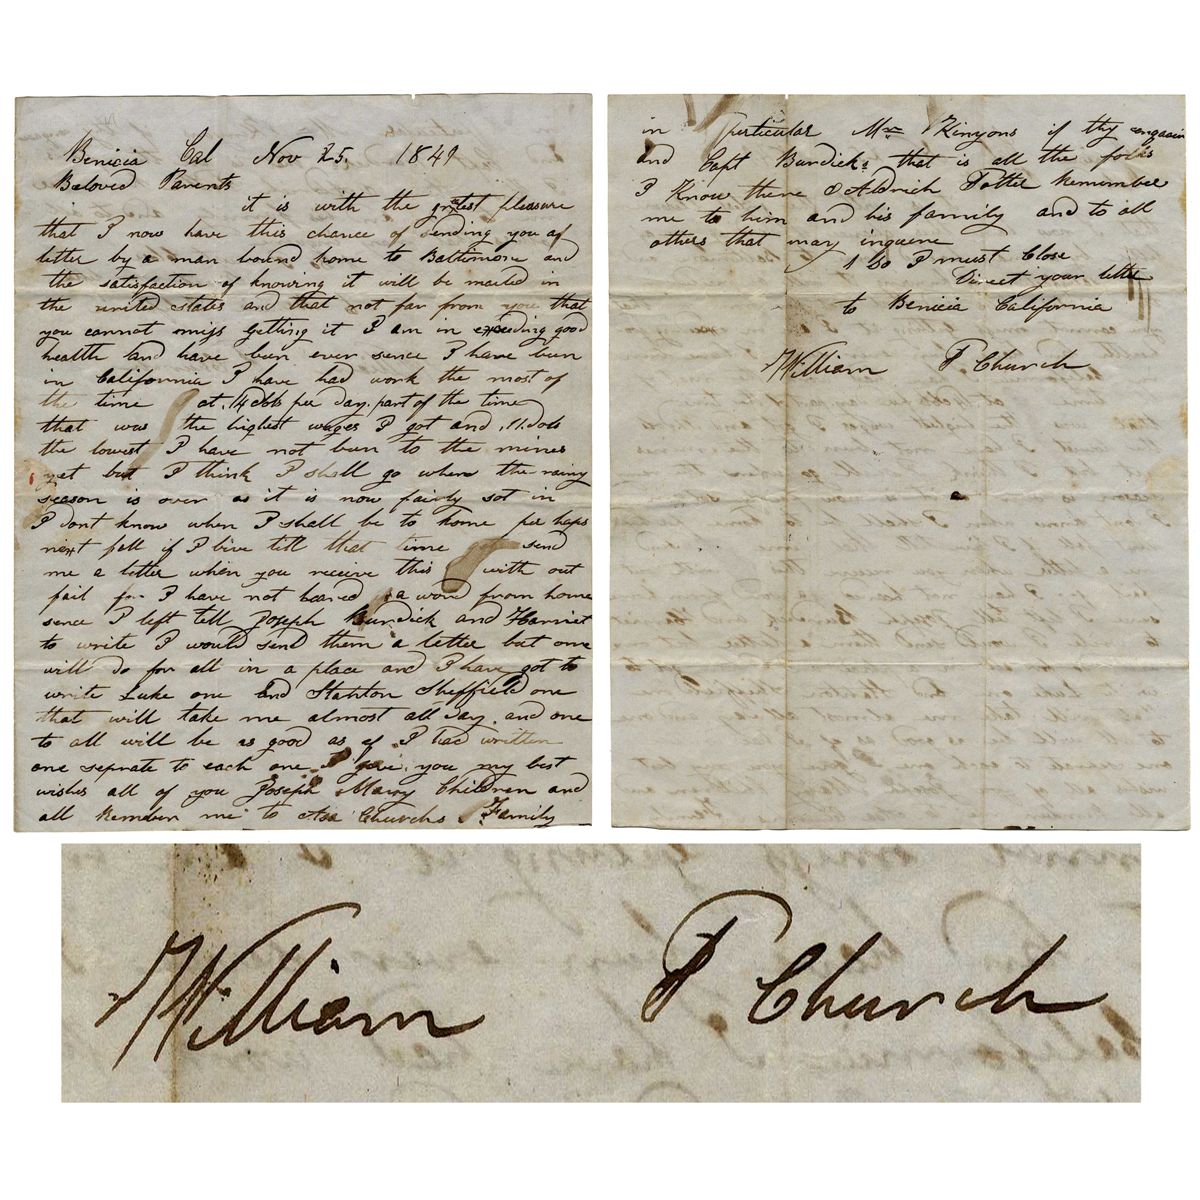 Benicia Cal Nov 25. 1849
Beloved Parents
it is with the gratest pleasure
that I now have this chance of sending you a
letter by a man bound home to Baltimore and
the satisfaction of knowing it will be mailed in
the united states and that not far from you that
you cannot miss getting it I am in exceeding good
health and have ben ever sence I have ben
in California I have had work the most of
the time at 14 dols per day part of the time
that was the highest wages I got and 11 dols
the lowest I have not ben to the mines
yet but I think I shall go when the rainy
season is over as it is now fairly sot in
I dont know when I shall be to home per haps
next fall if I live till that time send
me a letter when you receive this with out
fail for I have not heared a word from home
sence I left tell Joseph Burdick and Harriet
to write I would send them a letter but one
will do for all in a place and I have got to
write Luke one and Stanton Sheffield one
that will take me almost all day and one
to all will be as good as if I had written
one seprate to each one I give you my best
wishes all of you Joseph Marry Children and
all Remember me to Asa Churchs Family
in perticular Mr Kinyons if thy
and Capt Burdicks that is all the folks
I Know there & Aldrich Potter Remember
me to him and his family and to all
others that may inquire
So I must Close
Direct your letter
to Benicia California
William P. Church
William P. Church